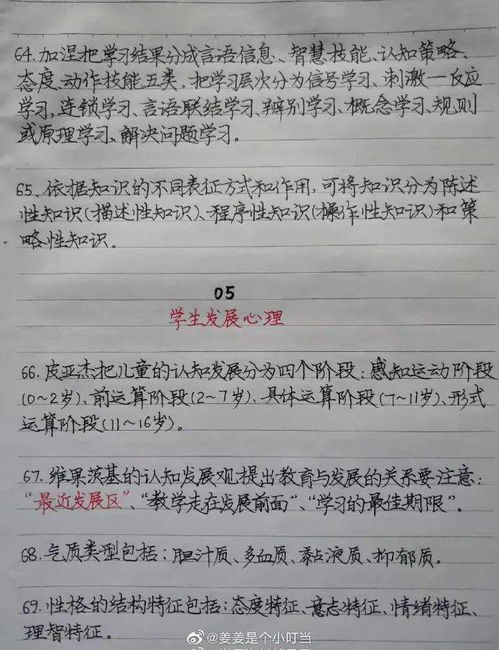 64.加涅把学习结果分成言语信息、智慧技能、认知策略、
态度、动作技能五类,把学习层次分为信号学习、刺激—反应
学习,连锁学习、言语联结学习、辨别学习、概念学习、规则
或原理学习、解决问题学习。
65.依据知识的不同表征方式和作用,可将知识分为陈述
性知识(描述性知识)、程序性知识(操作性知识)和策
略性知识。
05
学生发展心理
66.皮亚杰把儿童的认知发展分为四个阶段:感知运动阶段
(0~2岁)、前运算阶段(2~7岁)、具体运算阶段(7~11岁)、形式
运算阶段(11~16岁)。
67.维果茨基的认知发展观,提出教育与发展的关系要注意:
“最近发展区”、“教学走在发展前面”、“学习的最佳期限”。
68.气质类型包括:胆汁质、多血质、黏液质、抑郁质。
69.性格的结构特征包括:态度特征、意志特征、情绪特征、
理智特征。
@姜姜是个小叮当